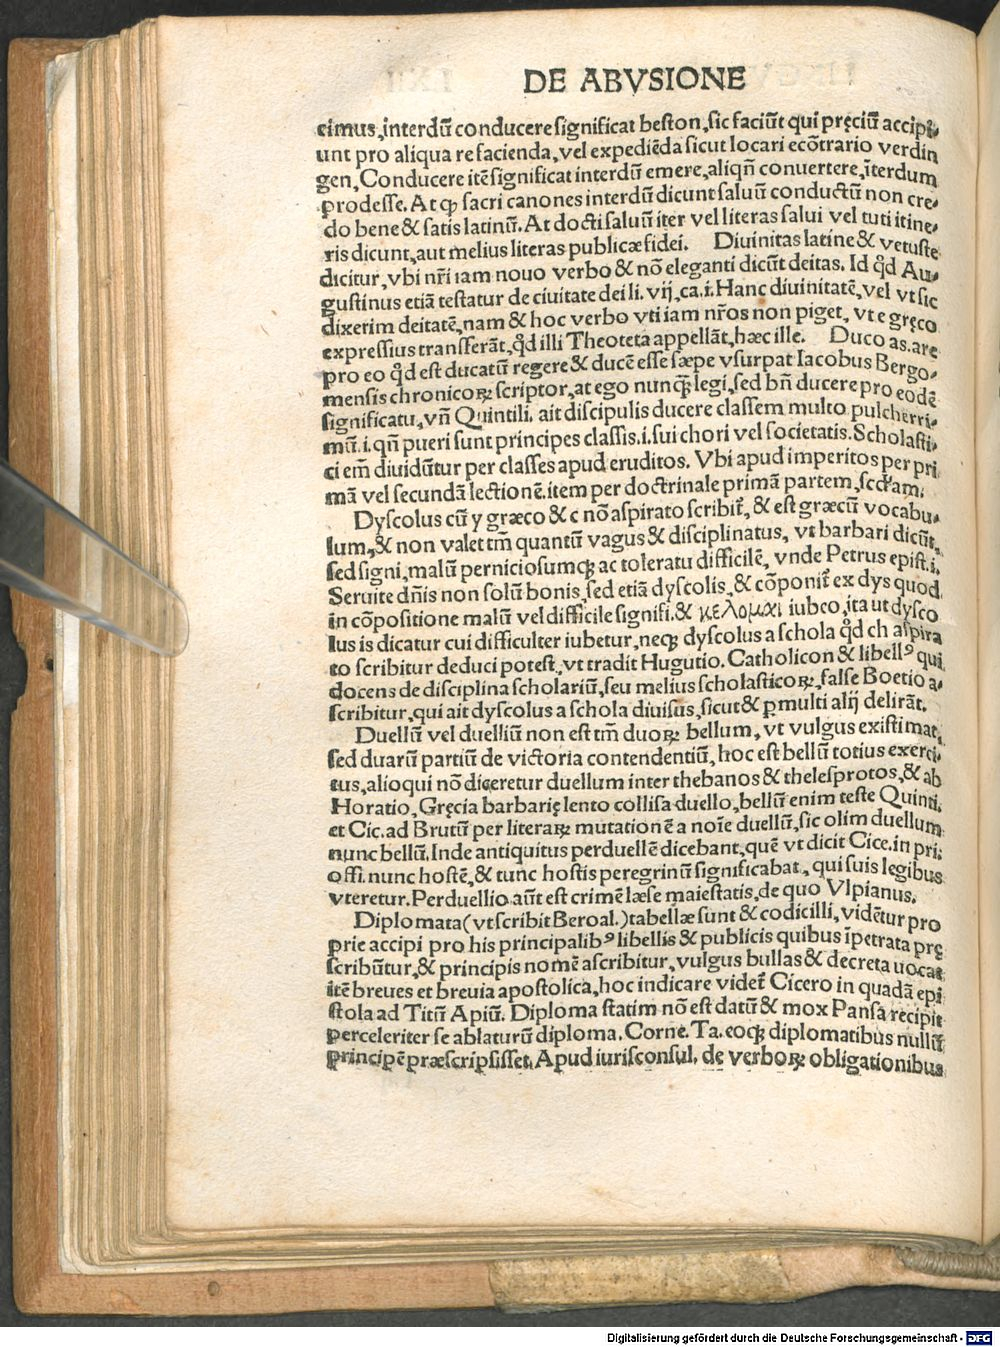 DE ABVSIONE
cimus,interdū conducere significat beston,sic faciūt qui pręciū accipi⸗
unt pro aliqua re facienda,vel expediēda sicut locari ecōtrario verdin
gen,Conducere itē significat interdū emere,aliqñ conuertere,īterdum
prodesse. At qꝫ sacri canones interdū dicunt saluū conductū non cre⸗
do bene & satis latinū. At docti saluū iter vel literas salui vel tuti itine⸗
ris dicunt,aut melius literas publicæ fidei. Diuinitas latine & vetuste
dicitur,vbi nr̃i iam nouo verbo & nō eleganti dicūt deitas. Id qđ Au⸗
gustinus etiā testatur de ciuitate dei li. vij,ca.i.Hanc diuinitatē,vel vt sic
dixerim deitatē,nam & hoc verbo vti iam nr̃os non piget, vt e gręco
expressius transferāt,qđ illi Theoteta appellāt,hæc ille. Duco as.are
pro eo qđ est ducatū regere & ducē esse sæpe vsurpat Iacobus Bergo⸗
mensis chronicoꝝ scriptor,at ego nunqꝫ legi,sed bñ ducere pro eodē
significatu,vñ Quintili. ait discipulis ducere classem multo pulcherri⸗
mū.i.qñ pueri sunt principes classis.i.sui chori vel societatis.Scholasti⸗
ci em̄ diuidūtur per classes apud eruditos. Vbi apud imperitos per pri
mā vel secundā lectionē.item per doctrinale primā partem,scđam.
Dyscolus cū y græco & c nō aspirato scribit̃, & est græcū vocabu⸗
lum,& non valet tm̄ quantū vagus & disciplinatus, vt barbari dicūt,
sed signi,malū perniciosumqꝫ ac toleratu difficilē, vnde Petrus epist.i.
Seruite dñis non solū bonis,sed etiā dyscolis,& cōponit̃ ex dys quod
in cōpositione malū vel difficile signifi.& κελομαι iubeo,ita ut dysco
lus is dicatur cui difficulter iubetur,neqꝫ dyscolus a schola qđ ch aspira
to scribitur deduci potest,vt tradit Hugutio. Catholicon & libellꝰ qui
docens de disciplina scholariū,seu melius scholasticoꝝ,false Boetio a⸗
scribitur,qui ait dyscolus a schola diuisus,sicut & ꝑmulti alij delirāt.
Duellū vel duelliū non est tm̄ duoꝝ bellum, vt vulgus existimat,
sed duarū partiū de victoria contendentiū, hoc est bellū totius exerci⸗
tus,alioqui nō diceretur duellum inter thebanos & thelesprotos,& ab
Horatio, Gręcia barbarię lento collisa duello,bellū enim teste Quinti.
et Cic.ad Brutū per literaꝝ mutationē a noīe duellū,sic olim duellum
nunc bellū. Inde antiquitus perduellē dicebant,quē vt dicit Cice.in pri:
offi.nunc hostē,& tunc hostis peregrinū significabat, qui suis legibus
vteretur. Perduellio aūt est crimē læse maiestatis,de quo Vlpianus.
Diplomata(vt scribit Beroal.)tabellæ sunt & codicilli, vidētur pro
prie accipi pro his principalibꝰ libellis & publicis quibus īpetrata prę
scribūtur,& principis nomē ascribitur,vulgus bullas & decreta uocat
itē breues et breuia apostolica,hoc indicare videt̃ Cicero in quadā epi
stola ad Titū Apiū. Diploma statim nō est datū & mox Pansa recipit
perceleriter se ablaturū diploma. Corne. Ta. eoqꝫ diplomatibus nullū
principē præscripsisset,Apud iurisconsul. de verboꝝ obligationibus
Digitalisierung gefördert durch die Deutsche Forschungsgemeinschaft - DFG